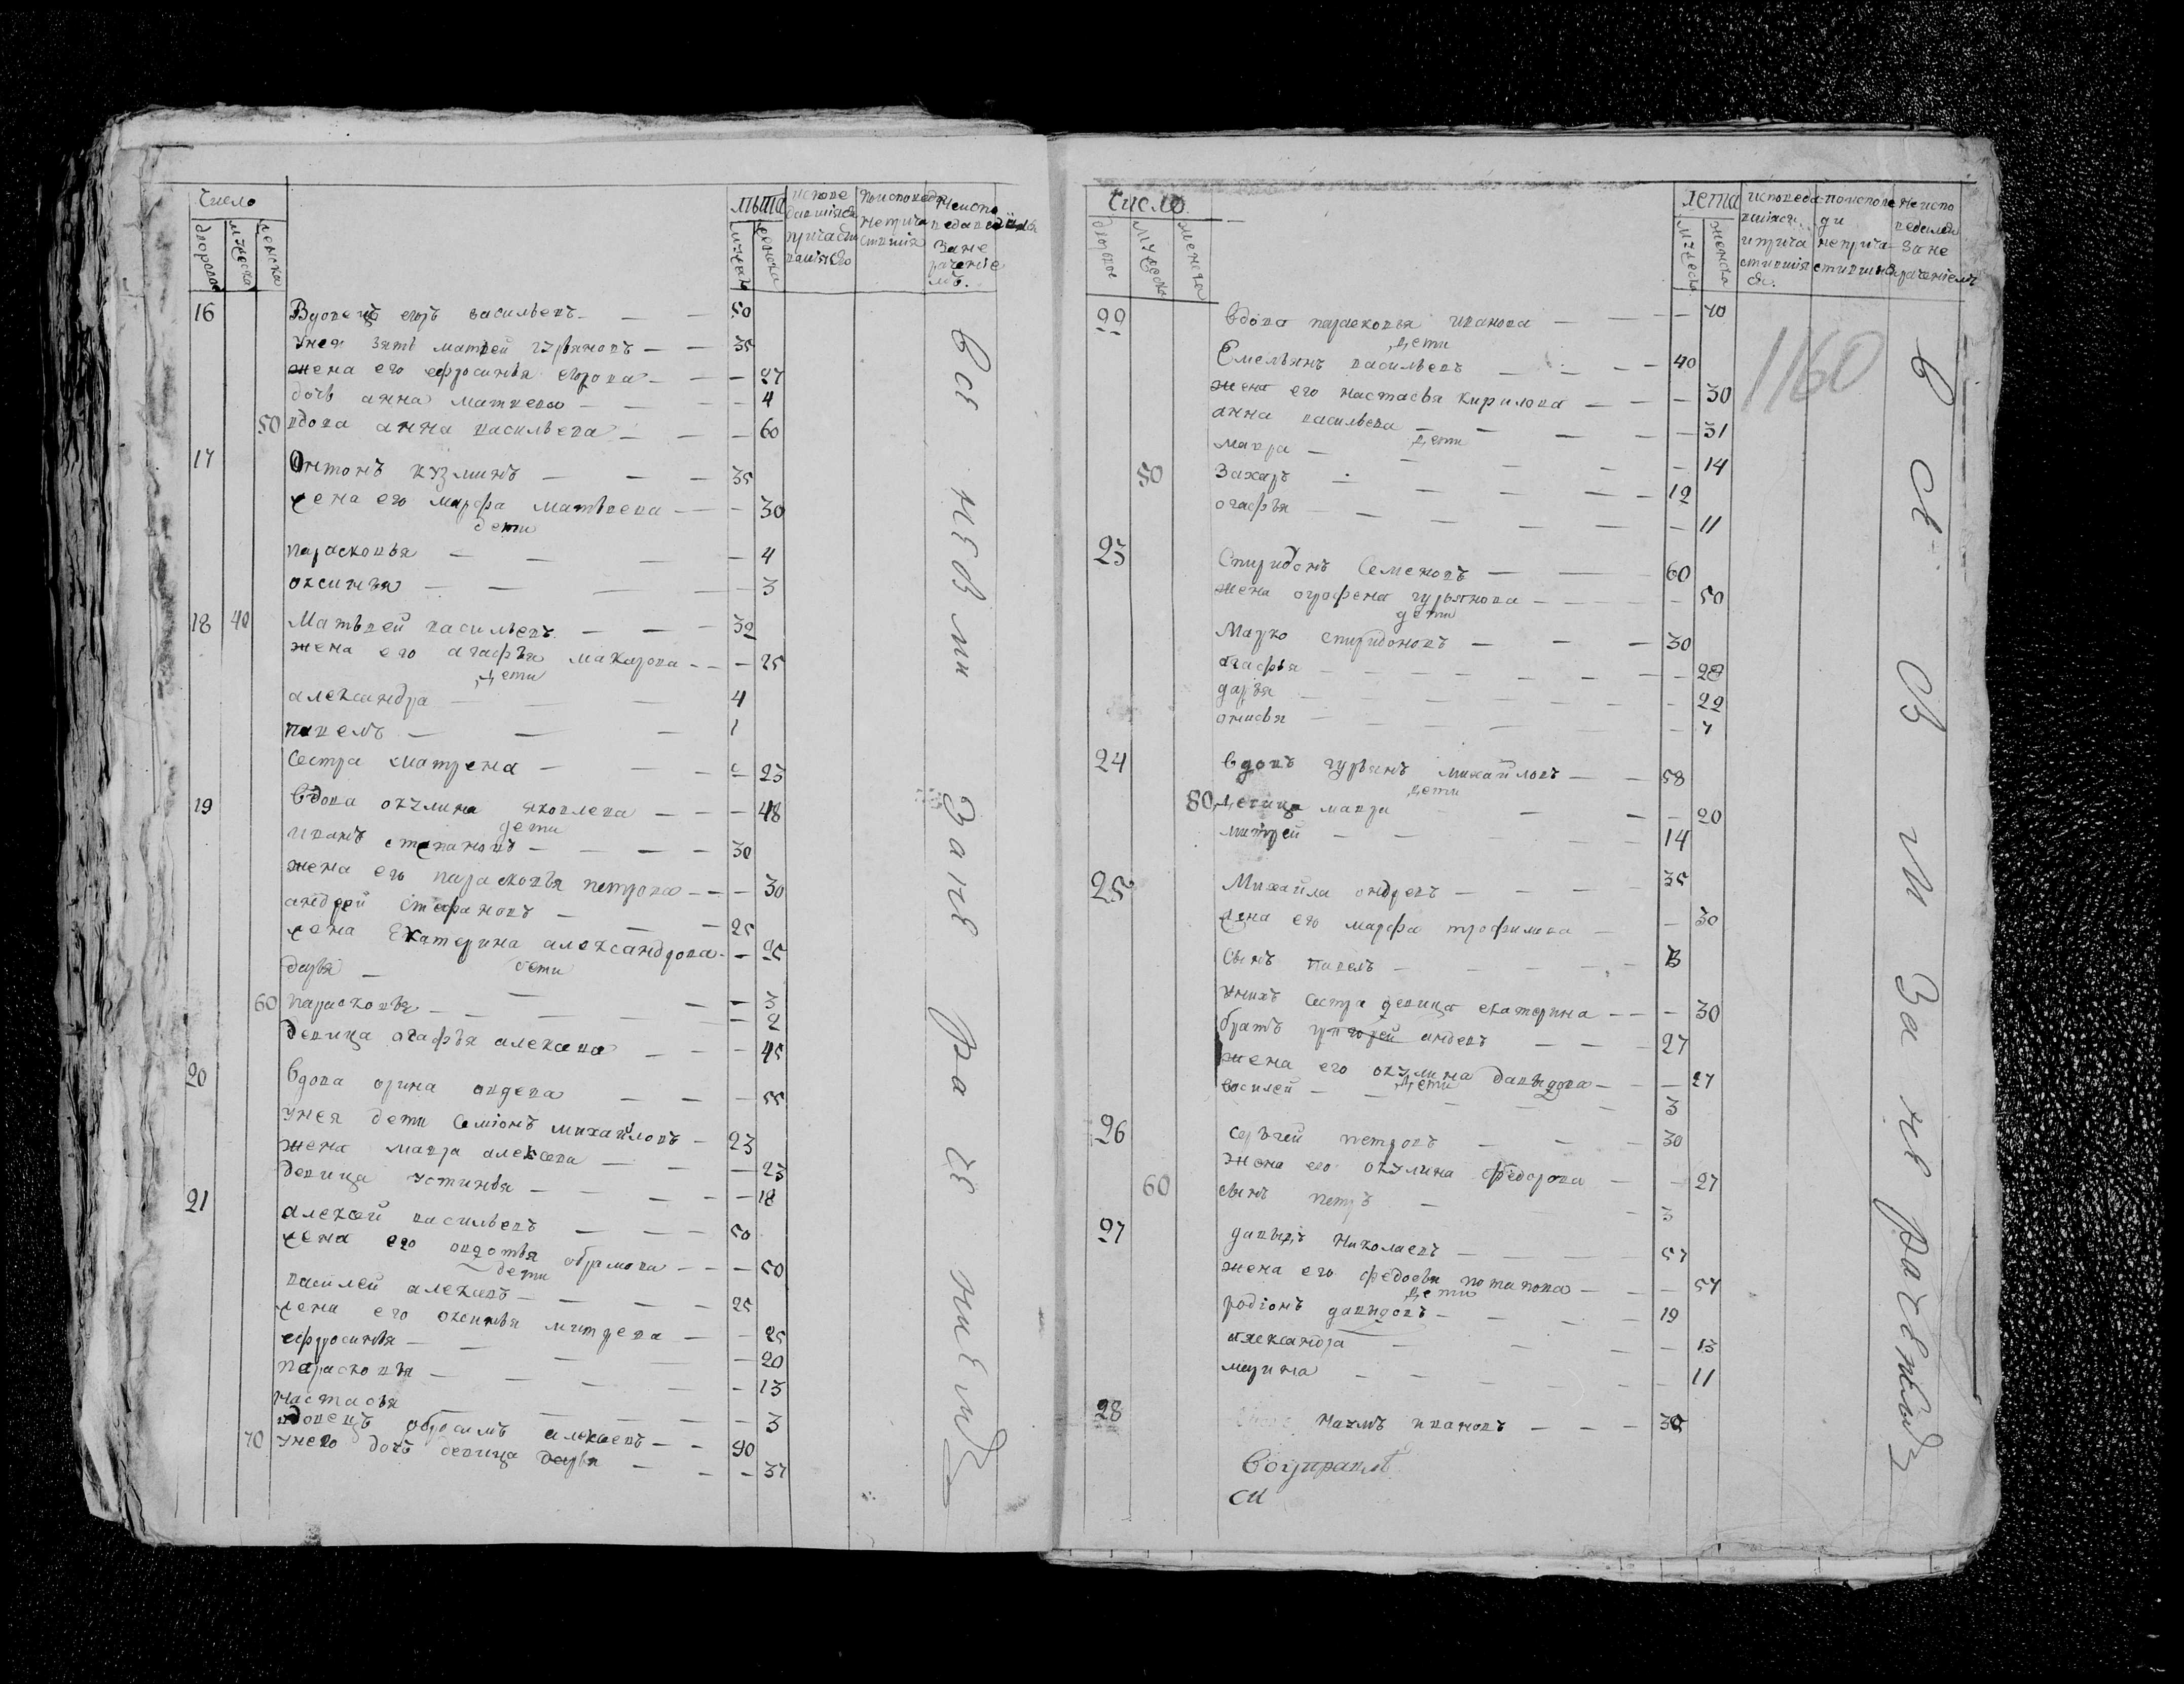 Число
лѣта
испове
давшияся
причасти
вшияся
поисповеди
непричастившия
Неиспо
ведавшияся
Зане
рачение
мъ.
дворовое
мужеска
женска
мужеска
женска
16 Вдовецъ егоръ васильевъ — — 50
Унея зять матвей гурьяновъ — — 35
жена его ефросинья егорова — — 27
дочь анна матвеева — — 4
50 вдова анна васильева — — 60
17 Онтонъ кузминъ — — 35
жена его марфа матвеева — — 30
дети
парасковья — — — 4
оксинья — — — 3
18 40 Матвей васильевъ — — 32
жена его агафья макарова — — 25
дети
александра — — — 4
павелъ — — — 1
Сестра матрена — — — 23
19 Вдова окулина яковлева — — 48
дети
иванъ степановъ — — — 30
жена его парасковья петрова — — 30
андрей стефановъ — — 25
жена Екатерина александрова — 25
дети
дарья — — — 3
60 парасковья — — — 2
девица агафья алекева — — 45
20 Вдова орина авдева — — 55
Унея дети Семионъ михайловъ — 23
жена мавра алексева — — 23
девица устинья — — — 18
21 алексей васильевъ — — — 50
жена его овдотья обрамова — — 50
дети
василей алексевъ — — — 25
жена его оксинья митрева — — 25
ефросинья — — — 20
парасковья — — — 13
настасья — — — 3
вдовецъ обросимъ алексевъ — — 90
70 унево дочь девица дарья — — 37
всѣ небыли Зане рачениемъ
Число
лета
исповеда
вшияся
ипричастившияся
поисповеди
непричастившия
неиспо
ведались
Зане
рачениемъ
дворовое
мужеска
женска
мужеска
женска
1160
22 Вдова парасковья иванова — — 70
дети
Емельянъ васильевъ — — — 40
жена его настасья кирилова — — 30
анна васильева — — — 31
дети
мавра — — — 14
50 Захаръ — — — 12
огафья — — — 11
23 Спиридонъ Семеновъ — — — 60
жена ографена гурьянова — — 50
дети
Марко спиридоновъ — — — 30
агафья — — — 28
дарья — — — 22
онисья — — — 7
24 Вдовъ гурьянъ михайловъ — — 58
дети
80 девица мавра — — — 20
митрей — — — 14
25 Михайла ондревъ — — — 35
жена его марфа трофимова — — 30
сынъ павелъ — — —
унихъ сестра девица екатерина — — 30
братъ григорей андевъ — — — 27
жена его окулина давыдова — — 27
дети
василей — — — 3
26 Сергей петровъ — — — 30
жена его окулина федорова — — 27
60 сынъ петръ — — — 3
27 давыдъ Николаевъ — — — 57
жена его федосья потапова — — 57
дети
родионъ давыдовъ — — — 19
александра — — — 13
марина — — — 11
28 Наумъ ивановъ — — —
всѣ небыли Зане рачениемъ